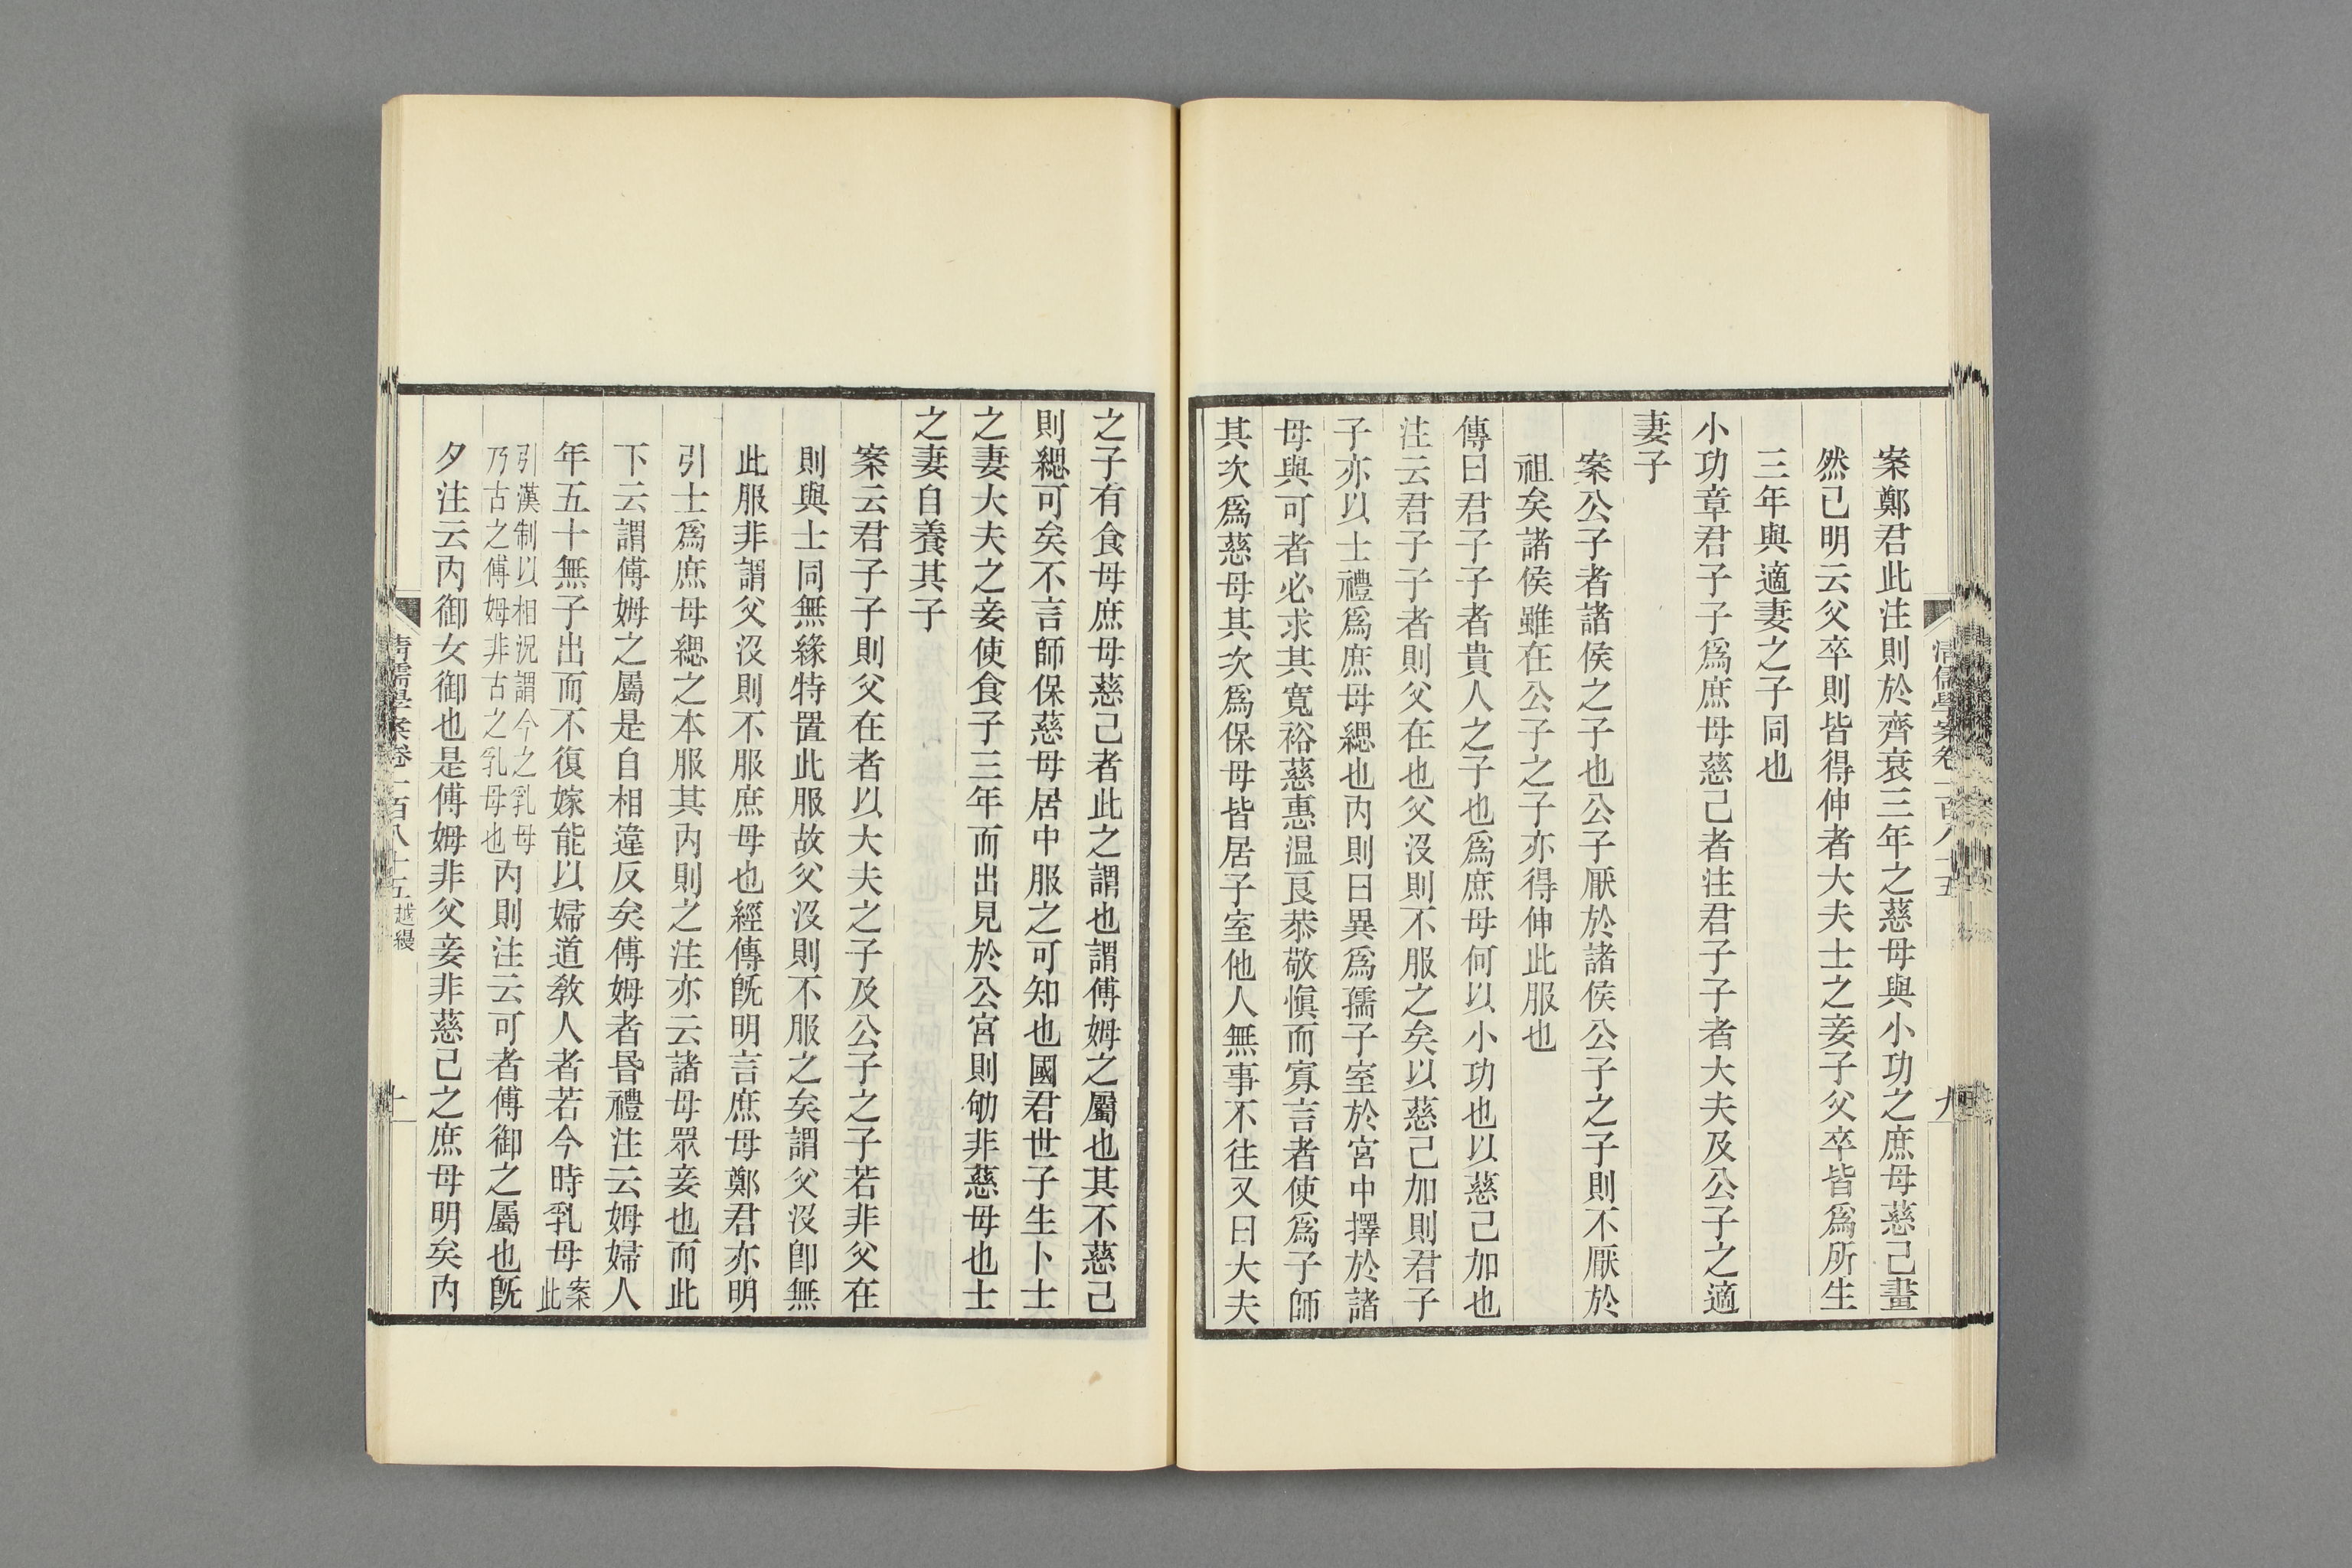 案鄭君此注則於齊衰三年之慈母與小功之庶母慈己畫
然已明云父卒則皆得伸者大夫士之妾子父卒皆爲所生
三年與適妻之子同也
小功章君子子爲庶母慈己者注君子子者大夫及公子之適
妻子
案公子者諸侯之子也公子厭於諸侯公子之子則不厭於
祖矣諸侯雖在公子之子亦得伸此服也
傳曰君子子者貴人之子也爲庶母何以小功也以慈己加也
注云君子子者則父在也父沒則不服之矣以慈己加則君子
子亦以士禮爲庶母緦也內則曰異爲孺子室於宮中擇於諸
母與可者必求其寬裕慈惠温良恭敬愼而寡言者使爲子師
其次爲慈母其次爲保母皆居子室他人無事不往又曰大夫
之子有食母庶母慈己者此之謂也謂傅姆之屬也其不慈己
則緦可矣不言師保慈母居中服之可知也國君世子生卜士
之妻大夫之妾使食子三年而出見於公宮則劬非慈母也士
之妻自養其子
案云君子子則父在者以大夫之子及公子之子若非父在
則與士同無緣特置此服故父沒則不服之矣謂父沒卽無
此服非謂父沒則不服庶母也經傳旣明言庶母鄭君亦明
引士爲庶母緦之本服其內則之注亦云諸母眾妾也而此
下云謂傅姆之屬是自相違反矣傅姆者昏禮注云姆婦人
年五十無子出而不復嫁能以婦道敎人者若今時乳母案此
引漢制以相況謂今之乳母乃古之傅姆非古之乳母也內則注云可者傅御之屬也旣
夕注云內御女御也是傅姆非父妾非慈己之庶母明矣內
清儒學案卷一百八十五越縵
十
清儒學案卷一百八十五
九